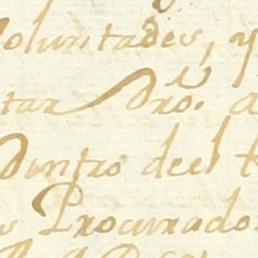 Voluntades, y
tar dro. a
Dentro deel t
Procurado